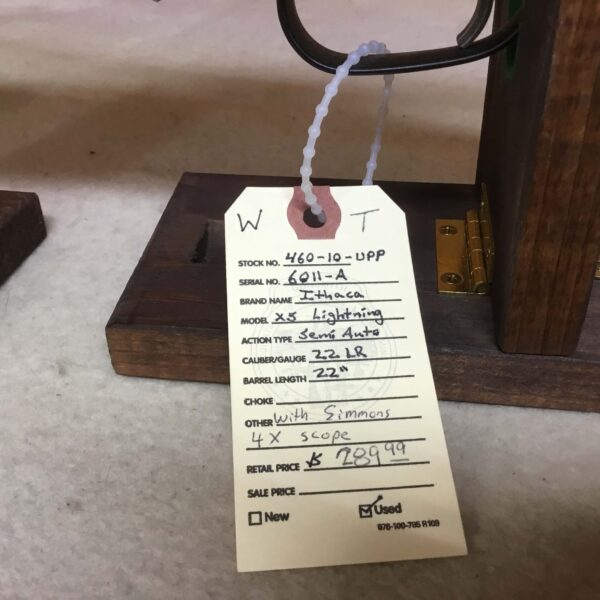 W T
STOCK NO. 460-10-UPP
SERIAL NO. 6011-A
BRAND NAME Ithaca
MODEL X5 Lightning
ACTION TYPE Semi Auto
CALIBER/GAUGE 22 LR
BARREL LENGTH 22"
CHOKE
OTHER with Simmons
4X scope
RETAIL PRICE $ 289 99
SALE PRICE
New Used
978-100-795 R109